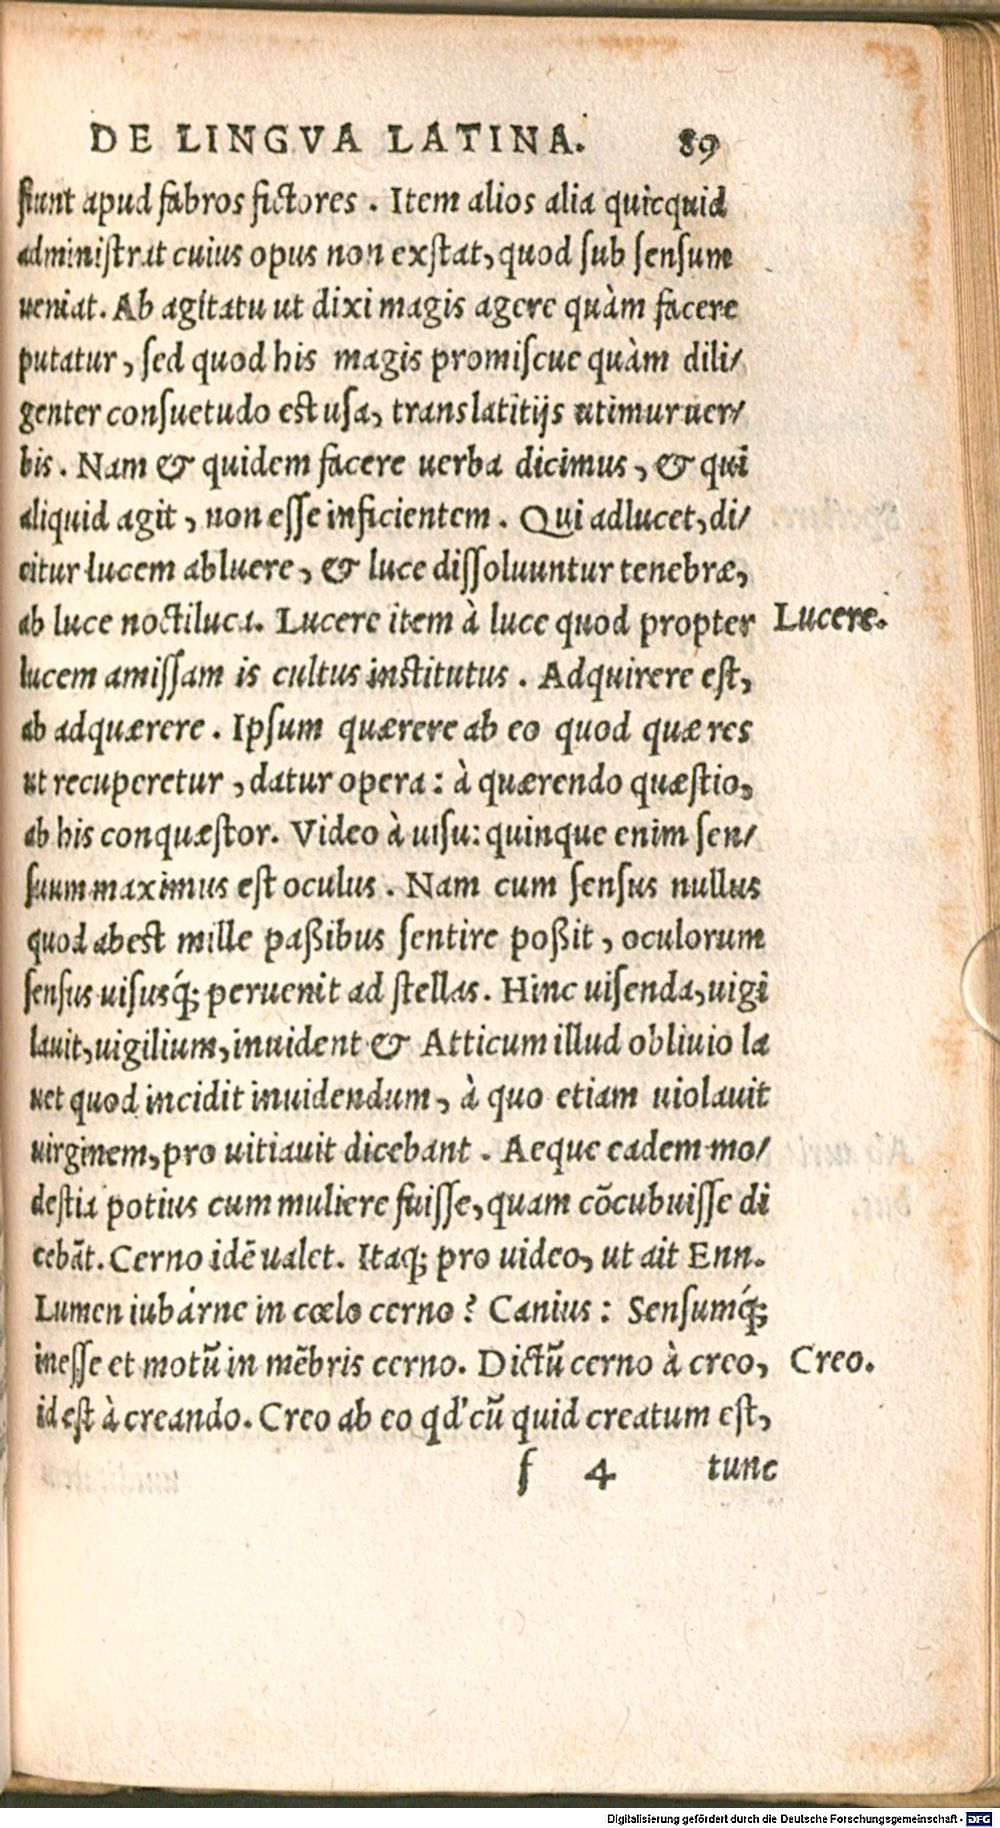 DE LINGVA LATINA. 89
fiunt apud fabros fictores. Item alios alia quicquid
administrat cuius opus non exstat, quod sub sensum
ueniat. Ab agitatu ut dixi magis agere quàm facere
putatur, sed quod his magis promiscue quàm dili/
genter consuetudo est usa, translatitijs utimur uer/
bis. Nam & quidem facere uerba dicimus, & qui
aliquid agit, non esse inficientem. Qui adlucet, di/
citur lucem abluere, & luce dissoluuntur tenebræ,
ab luce noctiluca. Lucere item à luce quod propter Lucere.
lucem amissam is cultus institutus. Adquirere est,
ab adquærere. Ipsum quærere ab eo quod quæ res
ut recuperetur, datur opera: à quærendo quæstio,
ab his conquæstor. Video à uisu: quinque enim sen/
suum maximus est oculus. Nam cum sensus nullus
quod abest mille paßibus sentire poßit, oculorum
sensus uisusq́; peruenit ad stellas. Hinc uisenda, uigi
lauit, uigilium, inuident & Atticum illud obliuio la
uet quod incidit inuidendum, à quo etiam uiolauit
uirginem, pro uitiauit dicebant. Aeque eadem mo/
destia potius cum muliere fuisse, quam cõcubuisse di
cebãt. Cerno idẽ ualet. Itaq; pro uideo, ut ait Enn.
Lumen iubárne in cœlo cerno? Canius: Sensumq́;
inesse et motũ in mẽbris cerno. Dictũ cerno à creo, Creo.
id est à creando. Creo ab eo qd' cũ quid creatum est,
f 4 tunc
Digitalisierung gefördert durch die Deutsche Forschungsgemeinschaft - DFG